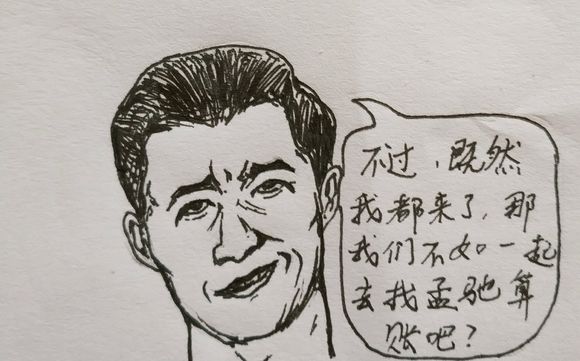 不过，既然
我都来了，那
我们不如一起
去找孟驰算
账吧？